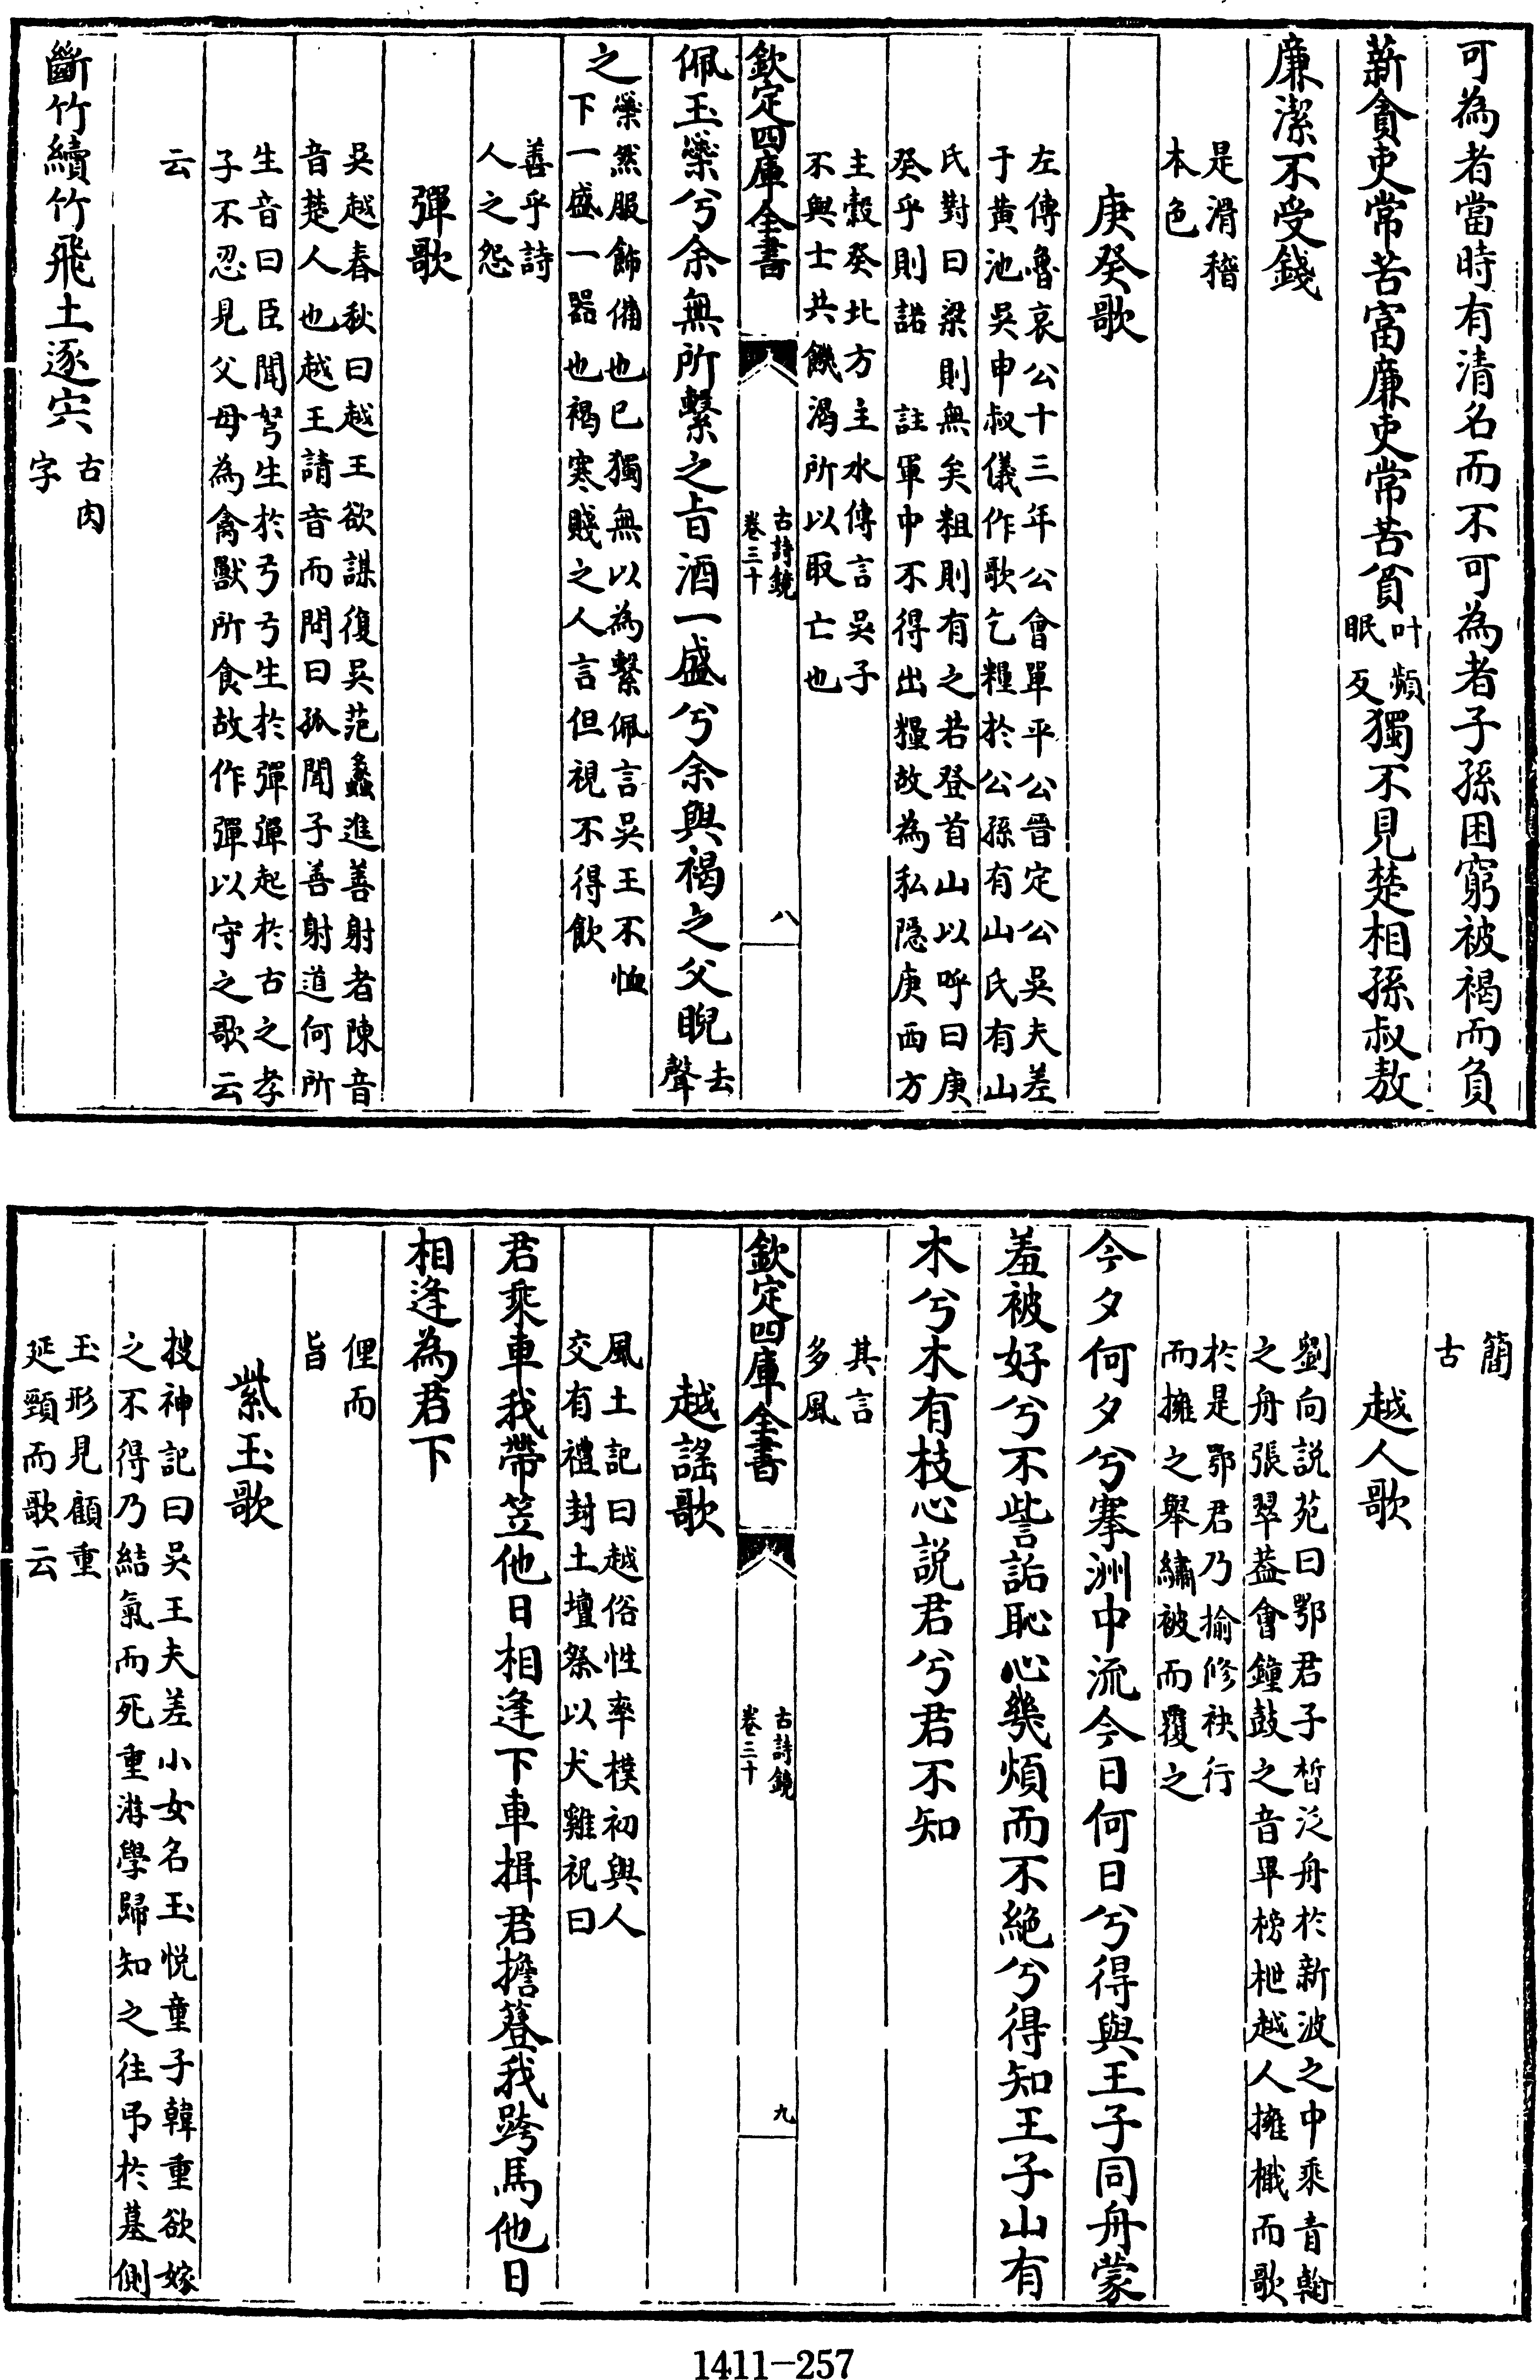 可為者當時有清名而不可為者子孫困窮被褐而負
薪貪吏常苦富廉吏常苦貧叶頻眠反獨不見楚相孫叔敖
廉潔不受錢
是滑稽
本色
庚癸歌
左傳魯哀公十三年公會單平公晉定公吳夫差
于黄池吳申叔儀作歌乞糧於公孫有山氏有山
氏對曰梁則無矣粗則有之若登首山以呼曰庚
癸乎則諾 註軍中不得出糧故為私隱庚西方
主穀癸北方主水傳言吳子
不與士共饑渴所以取亡也
欽定四庫全書
古詩鏡
卷三十
八
佩玉橤兮余無所繫之旨酒一盛兮余與褐之父睨去聲
之橤然服飾備也已獨無以為繫佩言吳王不恤
下一盛一器也褐寒賤之人言但視不得飲
善乎詩
人之怨
彈歌
吳越春秋曰越王欲謀復吳范蠡進善射者陳音
音楚人也越王請音而問曰孤聞子善射道何所
生音曰臣聞弩生於弓弓生於彈彈起於古之孝
子不忍見父母為禽獸所食故作彈以守之歌云
云
斷竹續竹飛土逐宍古肉字
簡
古
越人歌
劉向説苑曰鄂君子晳泛舟於新波之中乘青翰
之舟張翠葢會鐘鼓之音畢榜枻越人擁檝而歌
於是鄂君乃揄修袂行
而擁之舉繡被而覆之
今夕何夕兮搴洲中流今日何日兮得與王子同舟蒙
羞被好兮不訾詬恥心幾煩而不絶兮得知王子山有
木兮木有枝心説君兮君不知
其言
多風
欽定四庫全書
古詩鏡
卷三十
九
越謠歌
風土記曰越俗性率樸初與人
交有禮封土壇祭以犬雞祝曰
君乘車我帶笠他日相逢下車揖君擔簦我跨馬他日
相逢為君下
俚而
旨
紫玉歌
搜神記曰吳王夫差小女名玉悦童子韓重欲嫁
之不得乃結氣而死重游學歸知之往弔於墓側
玉形見顧重
延頸而歌云
1411—257